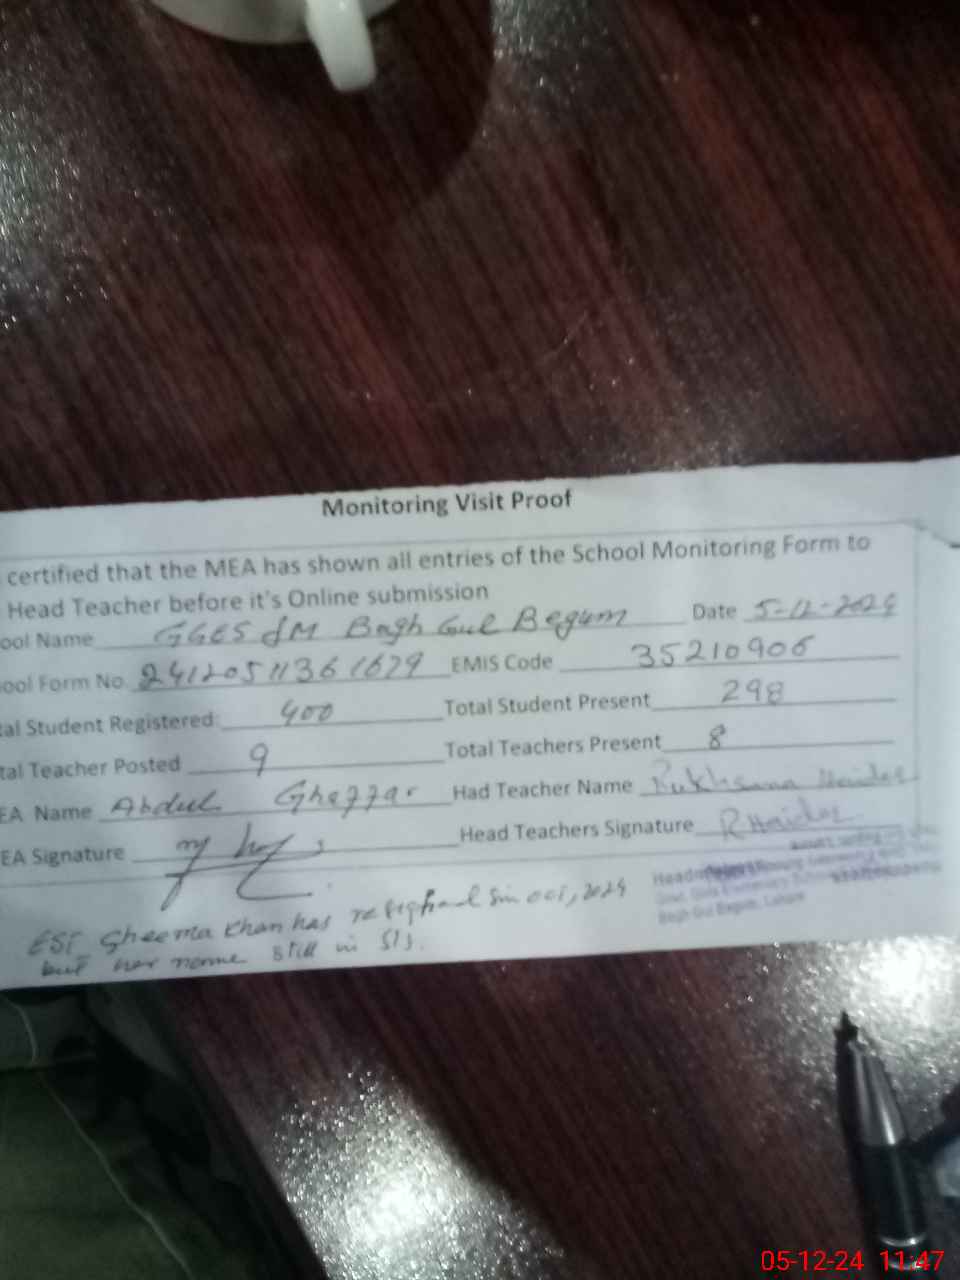 Monitoring Visit Proof
certified that the MEA has shown all entries of the School Monitoring Form to
Head Teacher before it's Online submission
ool Name GGES JM Bagh Gul Begum Date 5-12-2024
ool Form No. 24120511361679 EMIS Code 35210906
tal Student Registered 400 Total Student Present 298
tal Teacher Posted 9 Total Teachers Present 8
EA Name Abdul Ghaffar Had Teacher Name Rukhsana Haider
EA Signature Head Teachers Signature R Haider
Bagh Gul Begum, Lahore
EST Sheema Khan has oct, 2024
but her name still in SIS.
05-12-24 11:47